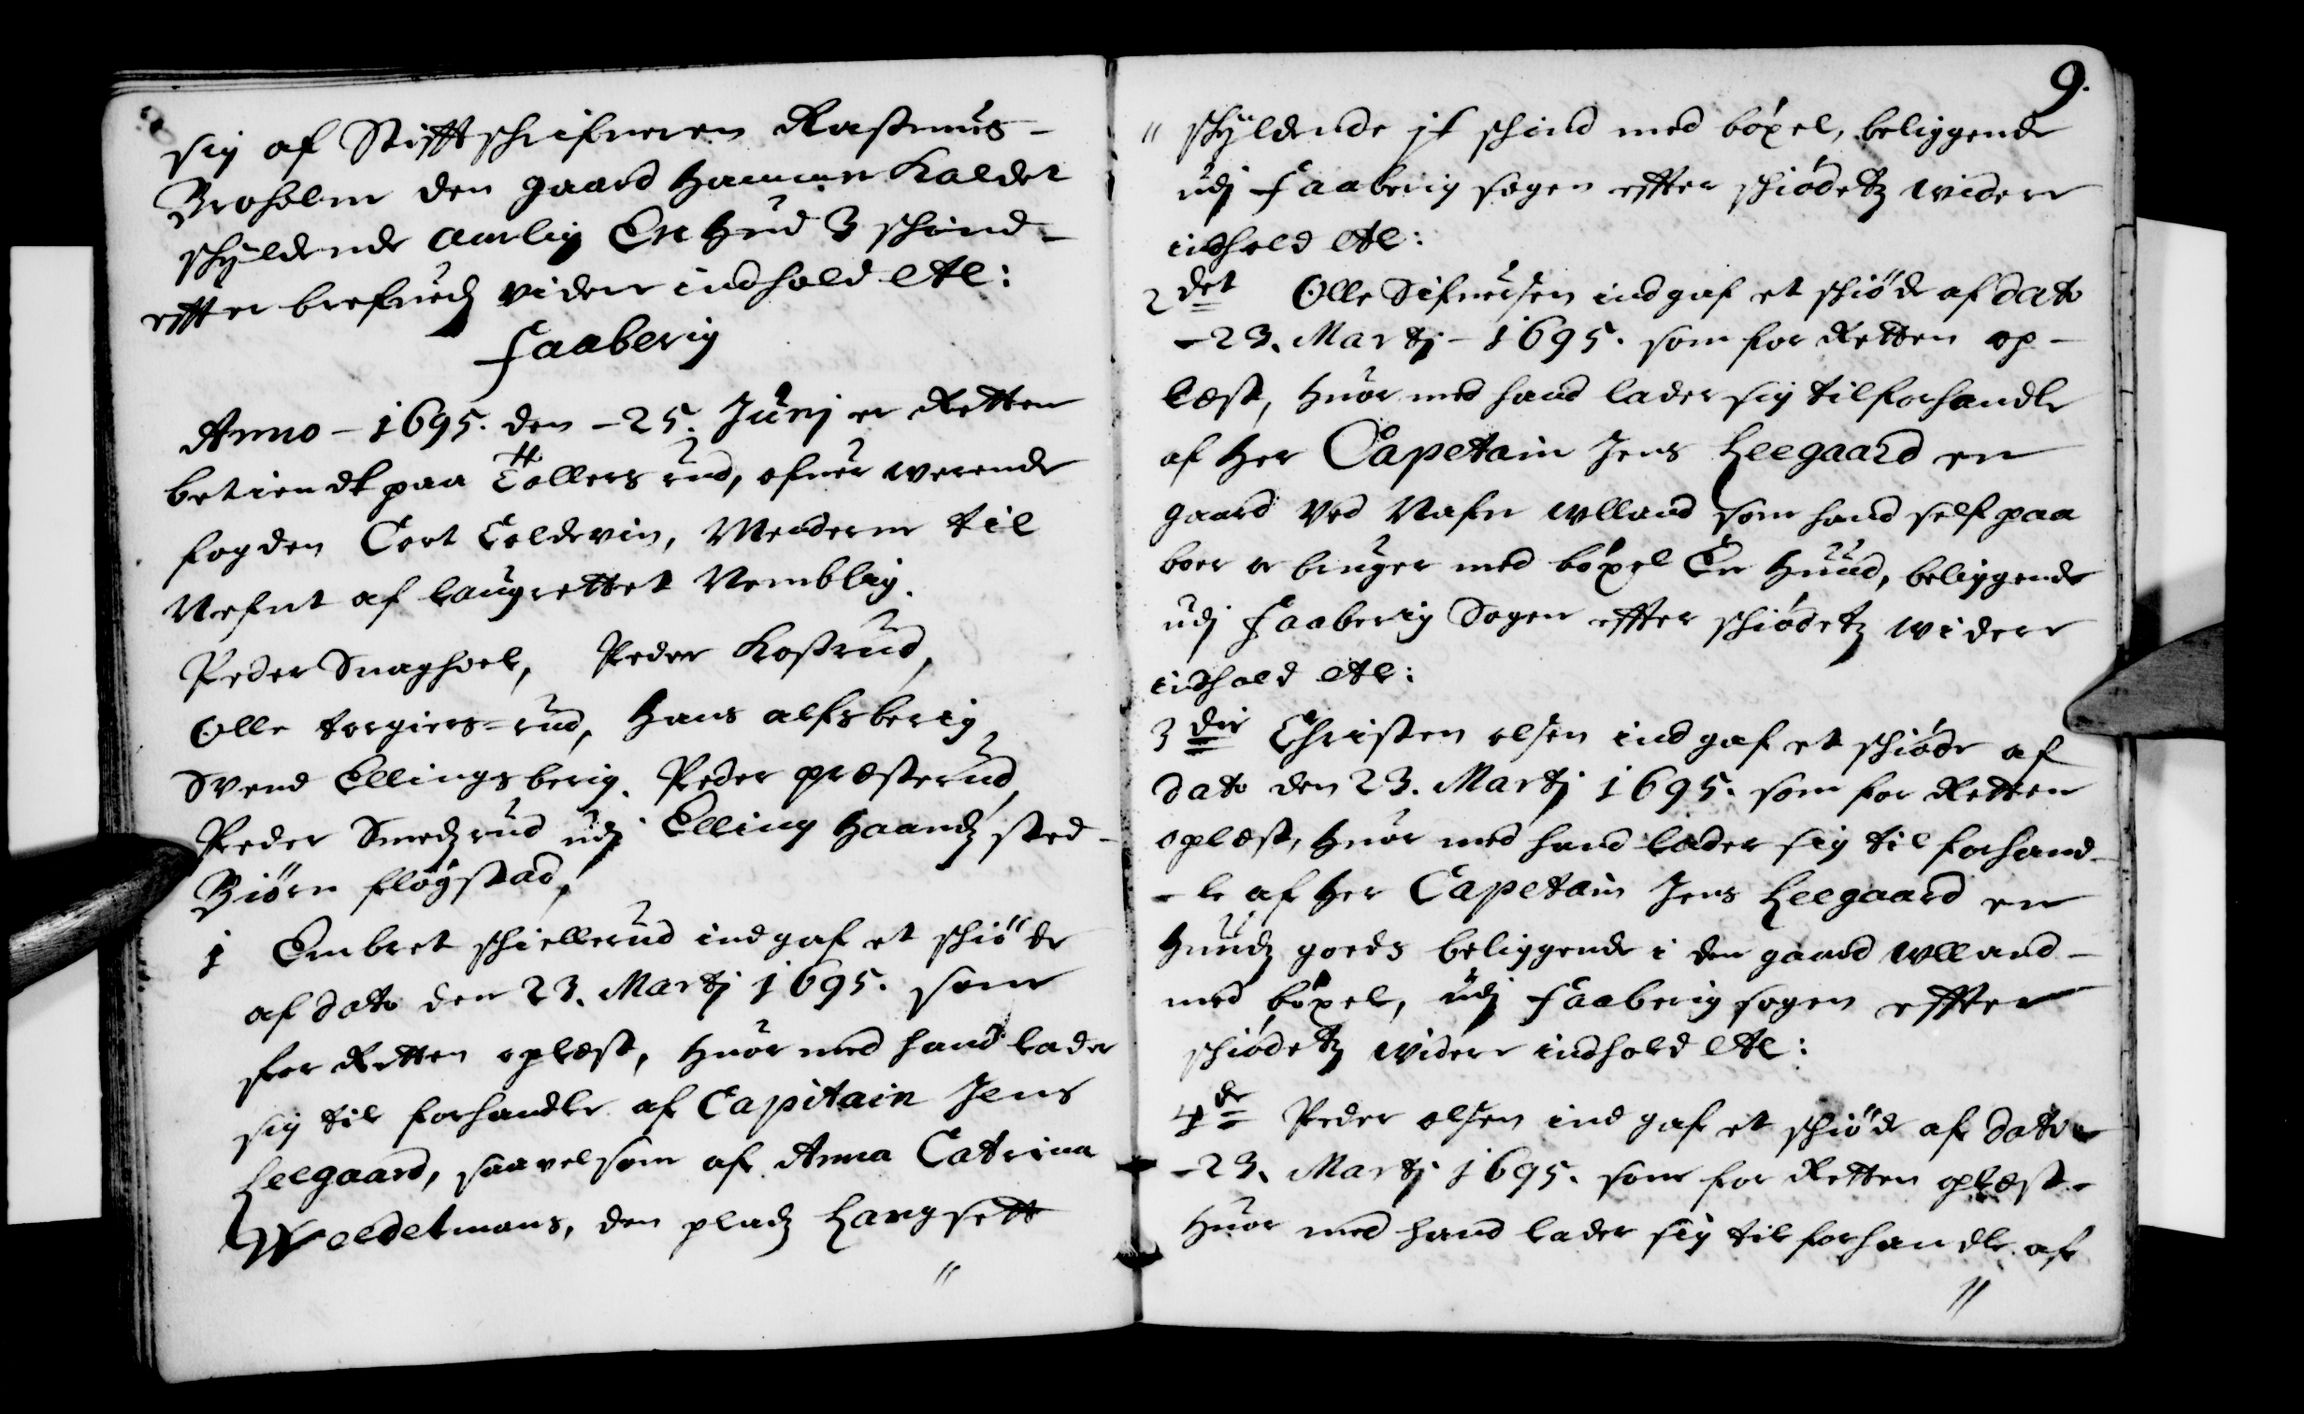 sig af Stifftschrifueren Rasmus-
Broholm den gaard Hammer Kaldet
schyldende aarlig En Hud 3 schind-
effter brefued videre indhold etc:
Faaberig
Anno-1695. den -25. Junj er Retten
betiendt paa Tollersrud, ofuer werende
fogden Cort Coldevin, Menderne til
Nefnt af laugrettet Nemblig.
Peder Snaghoel, Peder Kostrud,
Olle torgiers=rud, Hans alfsberig
Svend Ellingsberig. Peder præsterud,
Peder Smedzrud udj Elling Haandz sted-
Biørn fløgstad,
1 Embret schiellerud indgaf et schiøde
af dato den 23. Martj 1695. som
for Retten oplæst, Huor med hand lader
sig til forhandle af Capitain Jens
Heegaard, saavelsom af Anna Catrina
Weldetmans, den pladz Langsett
"
9.
" schyldende jt schind med böxel, beliggende
udj Faaberig sogen effter schiødetz widere
indhold etc:
2 det Olle Sifuersen indgaf et schiøde af dato
-23. Martj-1695. som for Retten op-
læst, Huor med hand lader sig tilforhandle
af Her Capetain Jens Heegaard en
gaard Ved Nafn Ulland som hand self paa
boer er bruger med böxel En Huud, beliggende
udj Faaberig Sogen effter schiødetz widere
indhold etc:
3 die Christen olsen indgaf et schiøde af
dato den 23. Martj 1695. som for Retten
oplæst, Huor med hand lader sig til forhand-
-le af Her Capetain Jens Heegaard en
Huudz goeds beliggende i den gaard Ulland-
med böxel, udj Faaberig sogen effter
schiødetz widere indhold etc:
4 de Peder olsen ind gaf et schiøde af dato
-23. Martj 1695. som for Retten oplæst-
Huor med hand lader sig til forhandle af
"